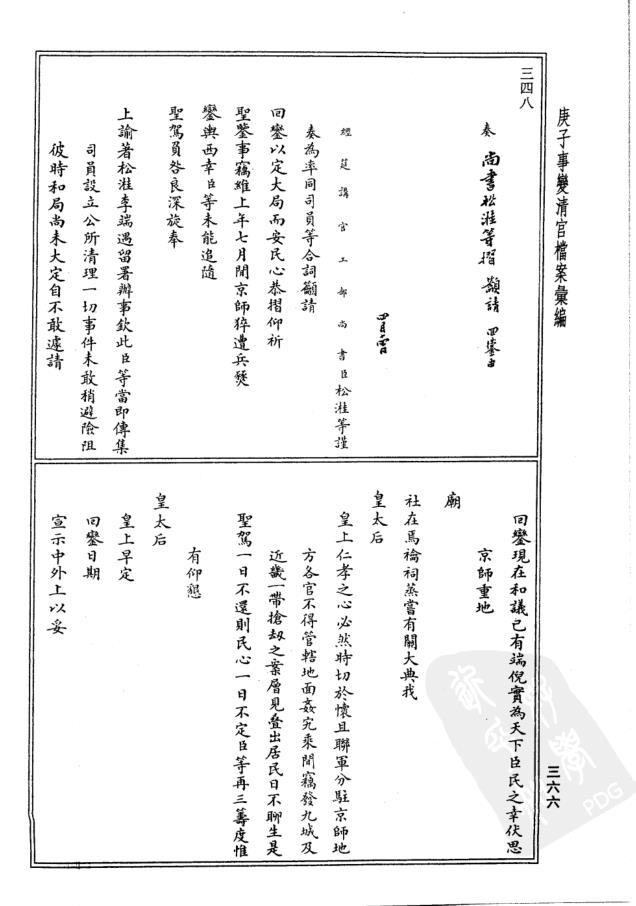 庚子事變清宮檔案彙編
三六六
三四八
奏 尚書松溎等摺 籲請 回鑾由
四月
經筵講官工部尚書臣松溎等謹
奏為率同司員等合詞籲請
回鑾以定大局而安民心恭摺仰祈
聖鑒事竊維上年七月閒京師猝遭兵燹
鑾輿西幸臣等未能追隨
聖駕負咎良深旋奉
上諭著松溎李端遇留署辦事欽此臣等當即傳集
司員設立公所清理一切事件未敢稍避險阻
彼時和局尚未大定自不敢遽請
回鑾現在和議已有端倪實為天下臣民之幸伏思
京師重地
廟
社在焉禴祠蒸嘗有關大典我
皇太后
皇上仁孝之心必然時切於懷且聯軍分駐京師地
方各官不得管轄地面姦宄乘閒竊發九城及
近畿一帶搶劫之案層見疊出居民日不聊生是
聖駕一日不還則民心一日不定臣等再三籌度惟
有仰懇
皇太后
皇上早定
回鑾日期
宣示中外上以妥